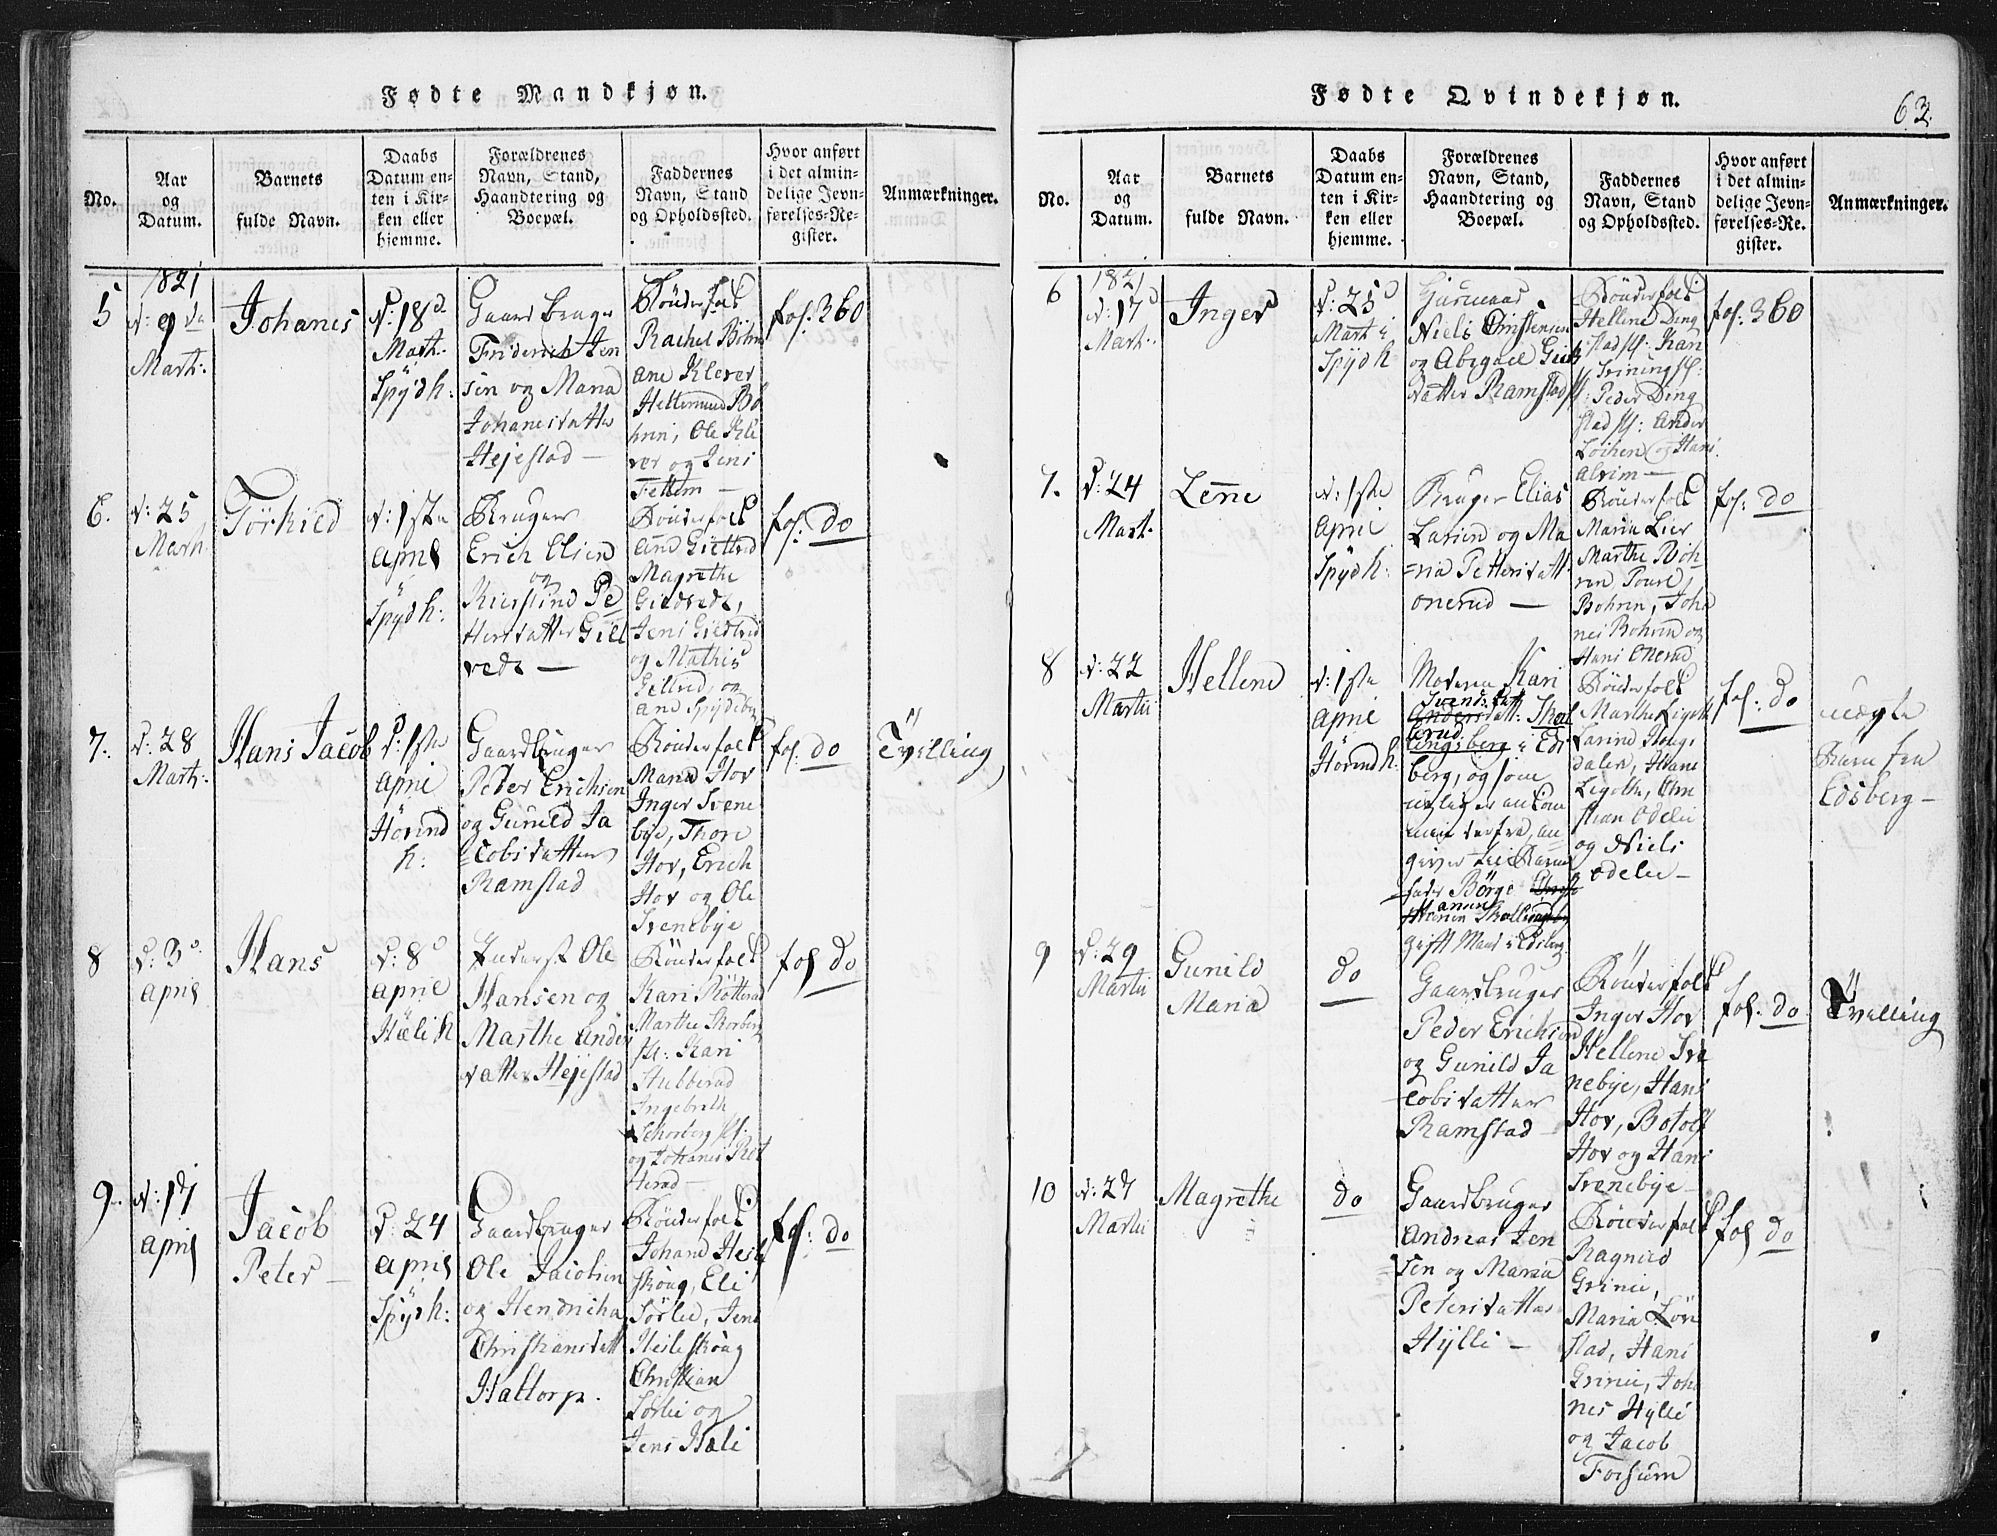 Fødte Mandkjøn.
No.
Aar
og
Datum.
Barnets
fulde Navn.
Daabs
Datum en-
ten i Kir-
ken eller
hjemme.
Forældrenes
Navn, Stand,
Haandtering og
Boepæl.
Faddernes
Navn, Stand
og Opholdssted.
Hvor anført
i det almin-
delige Jevn-
førelses-Re-
gister.
Anmærkninger.
1821
5
Marti:
Johanes
d: 18d
Marti
Spÿdh:
Gaardbruger
Friderich Jen
sen og Maria
Johanisdatter
Hejestad —
Bönderfolk
Rachel Böhn
ane Klever
Bö
hren, Ole Kle
ver og Jens
fol. 360
6.
d: 25
Marti
Törkild
d: 1ste
april
Spÿdh:
Bruger
Erich Olsen
og
Kierstine Pe
ttersdatter Gill
vede —
Bönderfolk
Magrethe
Jens
og Mathis
ane Spÿdeberg
fol: do
7.
d: 28
Marti:
Hans Jacob
d: 1ste
april
Hövind
h:
Gaardbruger
Peder Erichsen
og Gunild Ja
cobsdatter
Ramstad
Bönderfolk
Maria Hov
Inger Svene
bÿe, Thore
Hov, Erich
Hov og Ole
Svenebÿe
fol: do
Tvilling
8
d: 3d
april
Hans
d: 8d
april
Hælih
Inderst Ole
Hansen og
Marthe Anders
datter Hejestad
Bönderfolk
Kari Rötterud
Marthe Skorberg
Kari
Stubberud
Ingebreth
Schorberg
og Johanes Röt
terud —
fol do
9.
d: 17
april
Jacob
Peter —
d: 24
april
Spÿdh:
Gaardbruger
Ole Jacobsen
og Hendricha
Christiansdatt
Haltorp.
Bönderfolk
Johane Heile
skoug, Eli
Sörlie, Jens
Heileskoug
Christian
Sörlie og
Jens Hæli
fol: do
Fødte Qvindekjøn.
63.
No.
Aar
og
Datum.
Barnets
fulde Navn.
Daabs
Datum en-
ten i Kir-
ken eller
hjemme.
Forældrenes
Navn, Stand,
Haandtering og
Boepæl.
Faddernes
Navn, Stand
og Opholdssted.
Hvor anført
i det almin-
delige Jevn-
førelses-Re-
gister.
Anmærkninger.
1821
6
d: 17d
Marti:
Inger
d: 25d
Marti
Spÿdh
Niels Christensen
og Abigael
datter Ramstad
Bönderfolk
Hellene Ding
stad
Peder Ding
stad Ander
Löchen og Hans
alvim —
fol: 360
7.
d: 24
Marti
Lene
d: 1ste
april
Spÿdh:
Bruger Elias
Larsen og Ma
ria Pettersdatt
onerud —
Bönderfolk
Maria Lier
Marthe Boh
ren Poul
Bohren, Joha
nes Bohren og
Hans Onerud
fol: do
8
d: 22
Martii
Hellene
d: 1ste
april
Hövindh:
Moderen Kari
Svendsdatt
i Eds
berg, og som
derfra, an
giver til Barne
fader Börge
gift Mand i Edsberg
Bönderfolk
Marthe Ligolt
dalen, Hans
Ligolt
og Niels
odelie —
fol: do
uægte
Barn fra
Edsberg —
9
d: 29
Martii
Gunild
Maria
do
Gaardbruger
Peder Erichsen
og Gunild Ja
cobsdatter
Ramstad —
Bönderfolk
Inger Hov
Hellene Sve
nebÿe, Hans
Hov, Botolf
Hov og Hans
Svenebÿe
fol. do
Tvilling
10
d: 27
Martii
Magrethe
do
Gaardbruger
Andreas Jen
sen og Maria
Petersdatter
Hÿlli —
Bönderfolk
Ragnild
Grinie,
Maria Löv
stad, Hans
Grinie, Joha
nes Hÿlli
og Jacob
Fossum
fol do